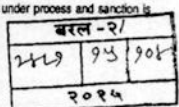 under process and sanction is
बरल - २/
२४८९ १५ १०४
२०२५